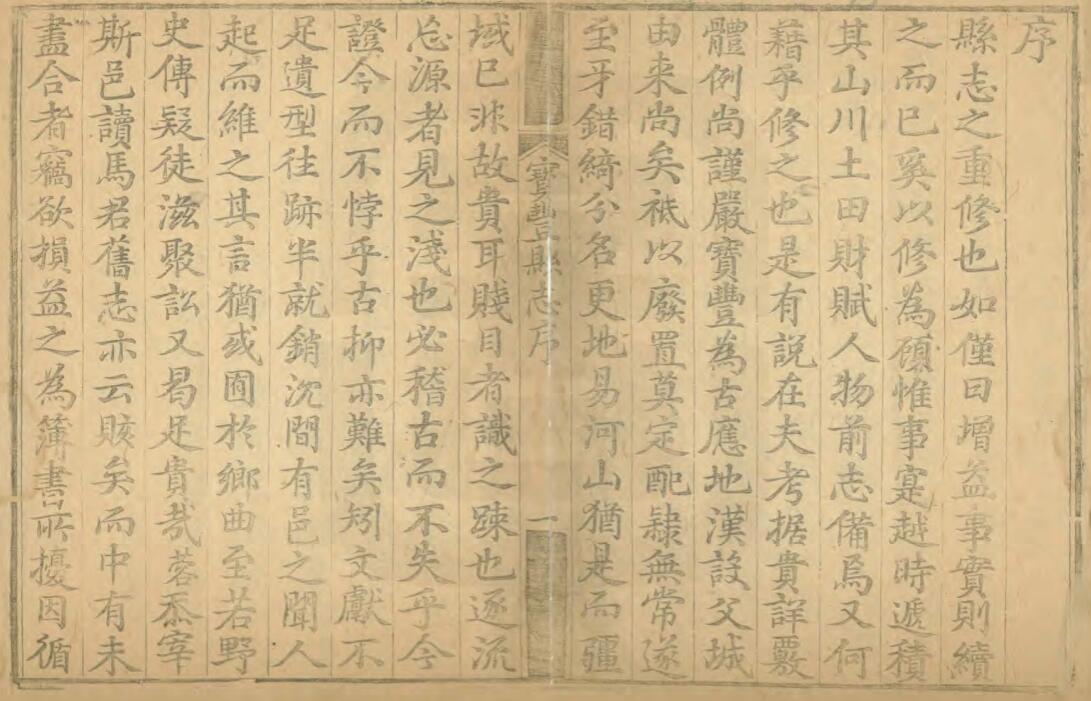 序
縣志之重修也如僅曰增益事實則續
之而已奚以修為顧惟事寔越時遞積
其山川土田財賦人物前志備焉又何
藉乎修之也是有説在夫考据貴詳覈
體例尚謹嚴寶豐為古應地漢設父城
由来尚矣祗以廢置莫定配隸無常遂
至牙錯綺分名更地易河山猶是而疆
寶豐縣志序
一
域已非故貴耳賤目者識之踈也逐流
忘源者見之淺也必稽古而不失乎今
證今而不悖乎古抑亦難矣矧文獻不
足遺型往跡半就銷沈間有邑之聞人
起而維之其言猶或囿於鄉曲至若野
史傳疑徒滋聚訟又曷足貴哉蓉忝宰
斯邑讀馬君舊志亦云賅矣而中有未
盡合者竊欲損益之為簿書所擾因循